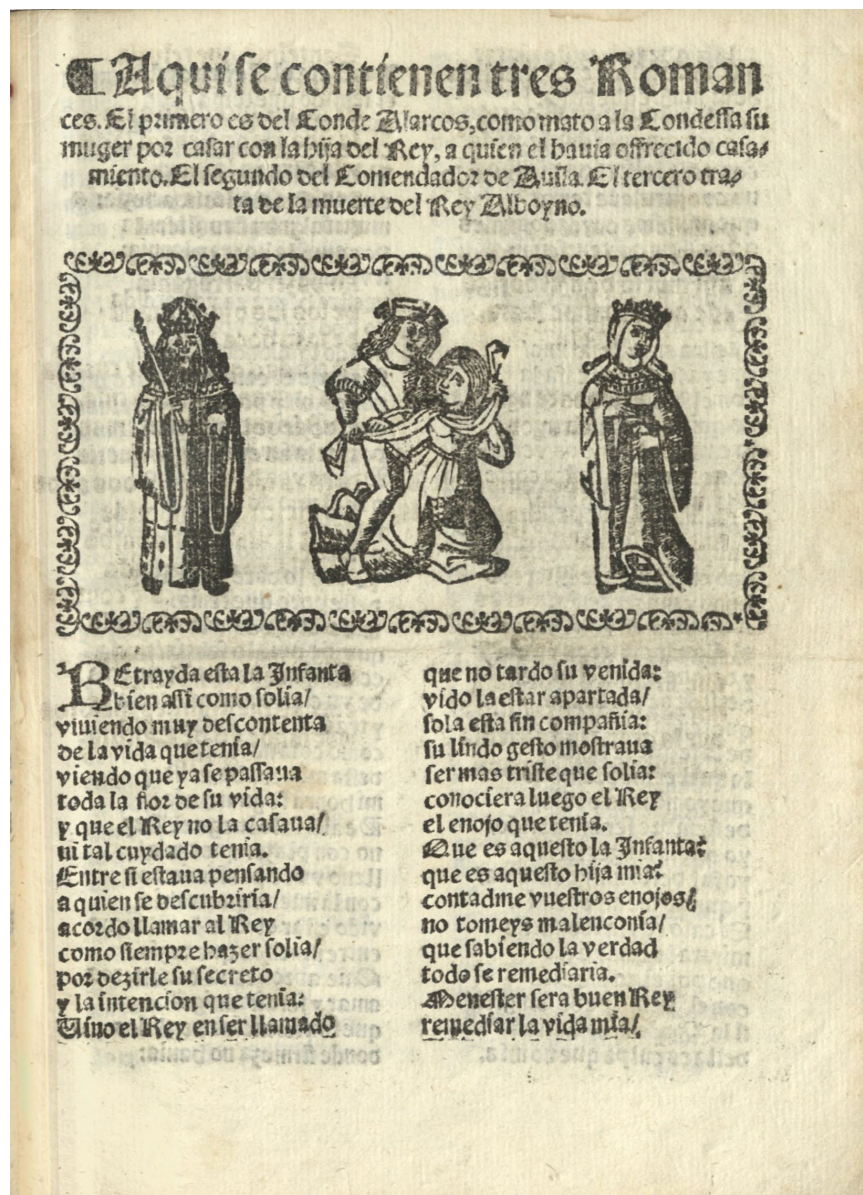 ¶ Aqui se contienen tres Roman
ces. El primero es del Conde Alarcos, como mato a la Condessa su
muger por casar con la hija del Rey, a quien el hauia offrecido casa-
miento. El segundo del Comendador de Auila. El tercero tra-
ta de la muerte del Rey Alboyno.
REtrayda esta la Infanta
bien assi como solia/
viuiendo muy descontenta
de la vida que tenia/
viendo que ya se passaua
toda la flor de su vida:
y que el Rey no la casaua/
ni tal cuydado tenia.
Entre si estaua pensando
a quien se descubriria/
acordo llamar al Rey
como siempre hazer solia/
por dezirle su secreto
y la intencion que tenia:
Uino el Rey en ser llamado
que no tardo su venida:
vido la estar apartada/
sola esta sin compañia:
su lindo gesto mostraua
ser mas triste que solia:
conociera luego el Rey
el enojo que tenia.
Que es aquesto la Infanta?
que es aquesto hija mia?
contadme vuestros enojos/
no tomeys malenconia/
que sabiendo la verdad
todo se remediaria.
Menester sera buen Rey
remediar la vida mia/